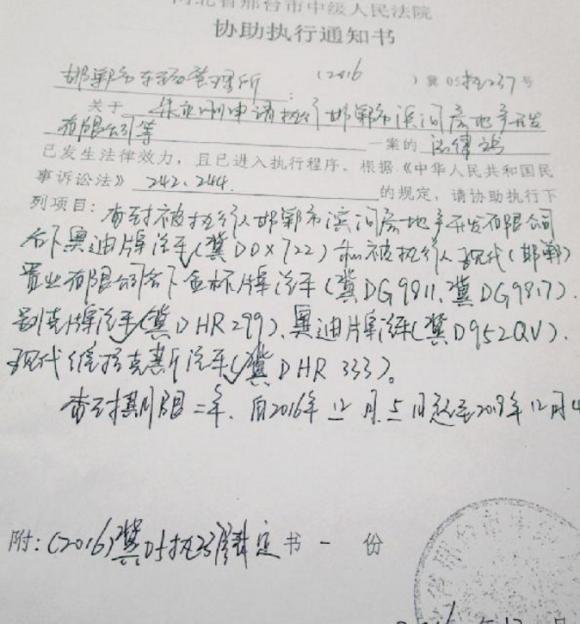 河北省邢台市中级人民法院
协助执行通知书
邯郸市车辆管理所： （2016）冀05执237号
关于 申请执行邯郸市滨河房地产开发
有限公司等 一案的 法律
已发生法律效力，且已进入执行程序。根据《中华人民共和国民
事诉讼法》 242、244、 的规定，请协助执行下
列项目：查封被执行人邯郸市滨河房地产开发有限公司
名下奥迪牌汽车（冀D0X722）和被执行人现代（邯郸）
置业有限公司名下金杯牌汽车（冀DG9811、冀DG9817）、
别克牌汽车（冀DHR299）、奥迪牌汽车（冀D952QV）、
现代维拉克斯汽车（冀DHR333）。
查封期限二年，自2016年12月5日起至2018年12月4
附：（2016）冀05执237号裁定书一份